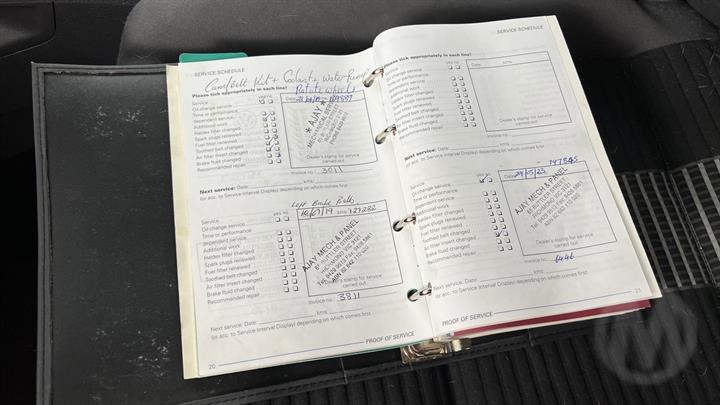 SERVICE SCHEDULE
Cambelt Kit + Coolant + Water Pump
Please tick appropriately in each line!
Rotate wheels
Service
yes no
Oil change service
Time or performance
dependent service
Additional work
Haldex filter changed
Spark plugs renewed
Fuel filter renewed
Toothed belt changed
Air filter insert changed
Brake fluid changed
Recommended repair
Date
kms
AJAY
MECHANICAL
Dealer's stamp for service
carried out
Invoice no.:
3011
Next service: Date:
kms:
(or acc. to Service Interval Display) depending on which comes first.
Left Brake Bulb
Service
yes no
Oil change service
Time or performance
dependent service
Additional work
Haldex filter changed
Spark plugs renewed
Fuel filter renewed
Toothed belt changed
Air filter insert changed
Brake fluid changed
Recommended repair
/07/19 kms 127282
AJAY MECH & PANEL
81 BUTTLER STREET
RICHMOND VIC 3121
Tel: 9429 9513 Fax: 9428 5861
ABN 62 642 110 020
Dealer's stamp for service
carried out
Invoice no.:
3811
Next service: Date:
kms:
(or acc. to Service Interval Display) depending on which comes first.
20
PROOF OF SERVICE
SERVICE SCHEDULE
Please tick appropriately in each line!
Service
yes no
Oil change service
Time or performance
dependent service
Additional work
Haldex filter changed
Spark plugs renewed
Fuel filter renewed
Toothed belt changed
Air filter insert changed
Brake fluid changed
Recommended repair
Date
kms
Dealer's stamp for service
carried out
Invoice no.:
Next service: Date:
kms:
(or acc. to Service Interval Display) depending on which comes first.
147845
Service
yes no
Oil change service
Time or performance
dependent service
Additional work
Haldex filter changed
Spark plugs renewed
Fuel filter renewed
Toothed belt changed
Air filter insert changed
Brake fluid changed
Recommended repair
Date 29/05/23
AJAY MECH & PANEL
81 BUTTLER STREET
RICHMOND VIC 3121
Tel: 9429 9513 Fax: 9428 5861
ABN 62 642 110 020
Dealer's stamp for service
carried out
Invoice no.:
6446
Next service: Date:
kms:
(or acc. to Service Interval Display) depending on which comes first.
PROOF OF SERVICE
21